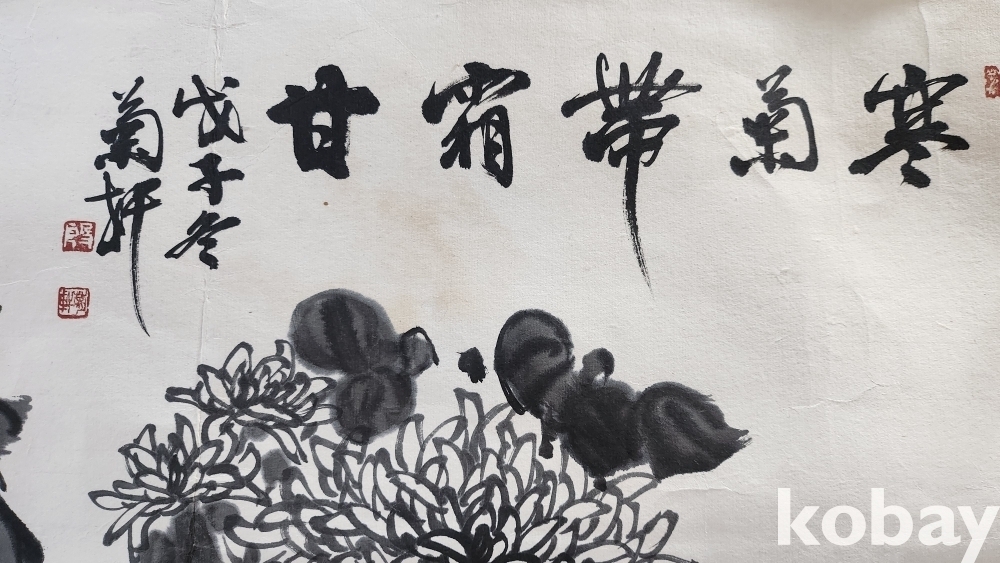 寒菊帶霜甘
戊子冬
菊軒
kobay